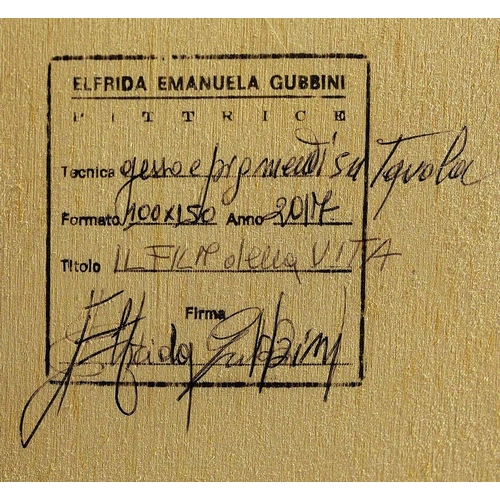 ELFRIDA EMANUELA GUBBINI
PITTRICE
Tecnica gesso e pigmenti su Tavola
Formato 100x150 Anno 2017
Titolo IL FILM della VITA
Firma
Elfrida Gubbini